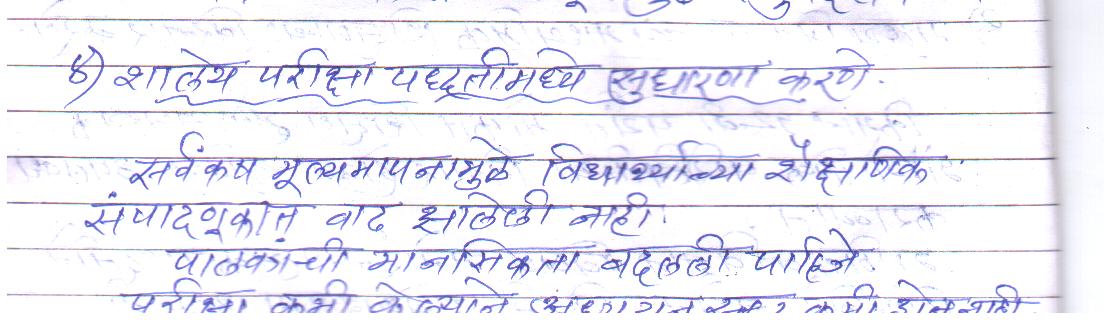 ४) शालेय परीक्षा पध्दतीमध्ये सुधारणा करणे.
सर्वंकष मूल्यमापनामुळे विद्यार्थ्यांच्या शैक्षणिक
संपादणूकीत वाढ झालेली नाही.
पालकांची मानसिकता बदलली पाहिजे.
परीक्षा कमी केल्याने अध्ययन स्तर कमी होत नाही